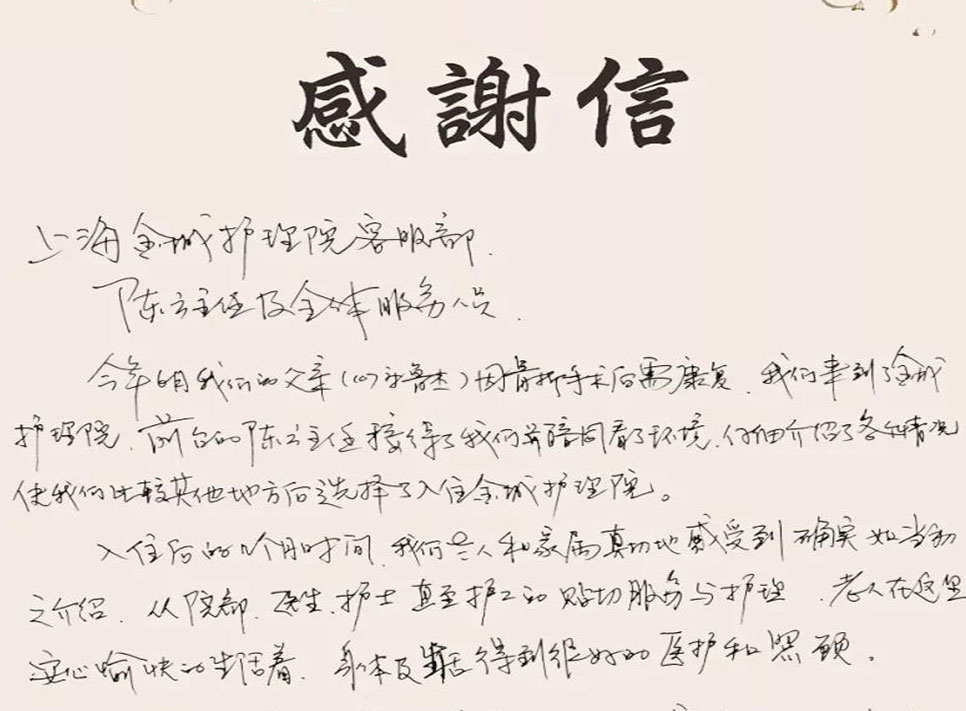 感謝信
上海金城护理院客服部.
陈主任及全体服务人员.
今年 我们的父辈( )因骨折手术后需康复.我们来到了金城
护理院.前台的陈主任接待了我们并陪同看了环境.仔细介绍了各种情况
使我们比较其他地方后选择了入住金城护理院。
入住后的 个月时间.我们老人和家属真切地感受到确实如当初
之介绍.从院部.医生.护士甚至护工的贴切服务与护理.老人在这里
安心愉快的生活着.身体及生活得到很好的医护和照顾。